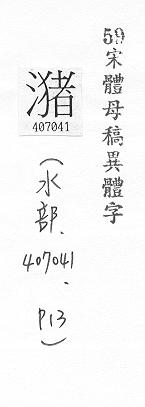 59宋體母稿異體字
潴
407041
(水部.
407041.
P13)